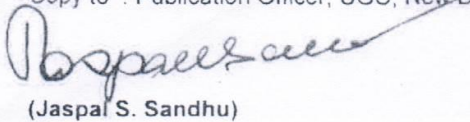 Copy to : Publication Officer, UGC, New D
(Jaspal S. Sandhu)